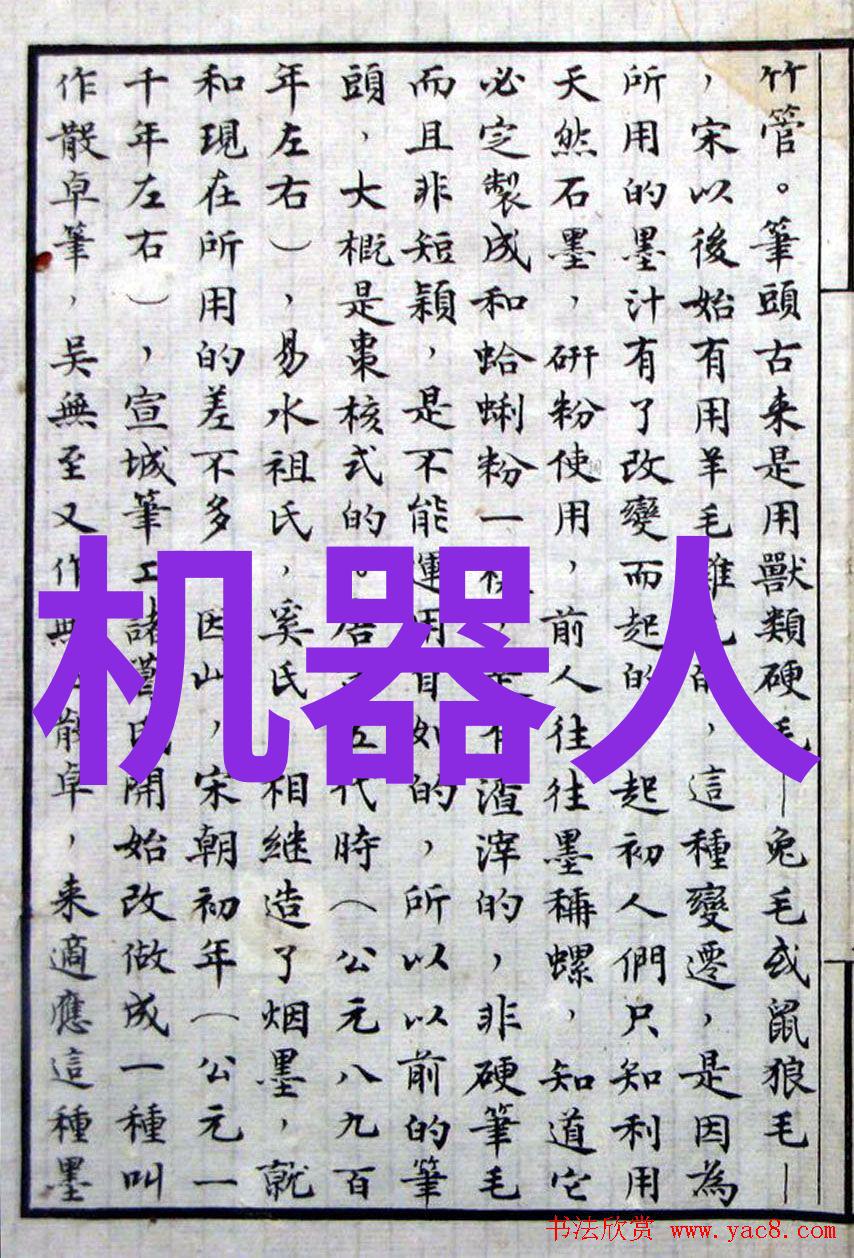 竹管。筆頭古来是用獸類硬毛—兔毛或鼠狼毛—
，宋以後始有用羊毛雜的，這種變遷，是因為
所用的墨汁有了改變而起的起初人們只知利用
天然石墨，研粉使用，前人往往墨稱螺，知道它
必定製成和蛤蜊粉一渣滓的，非硬筆毛
而且非短穎，是不能運用自如的，所以以前的筆
頭，大概是棗核式的。唐五代時（公元八九百
年左右），易水祖氏，奚氏相継造了烟墨，就
和現在所用的差不多因山，宋朝初年（公元一
千年左右），宣城筆工諸氏開始改做成一種叫
作散卓筆，吳無至又作無散卓，来適應這種墨
机器人
书法欣赏 www.yac8.com